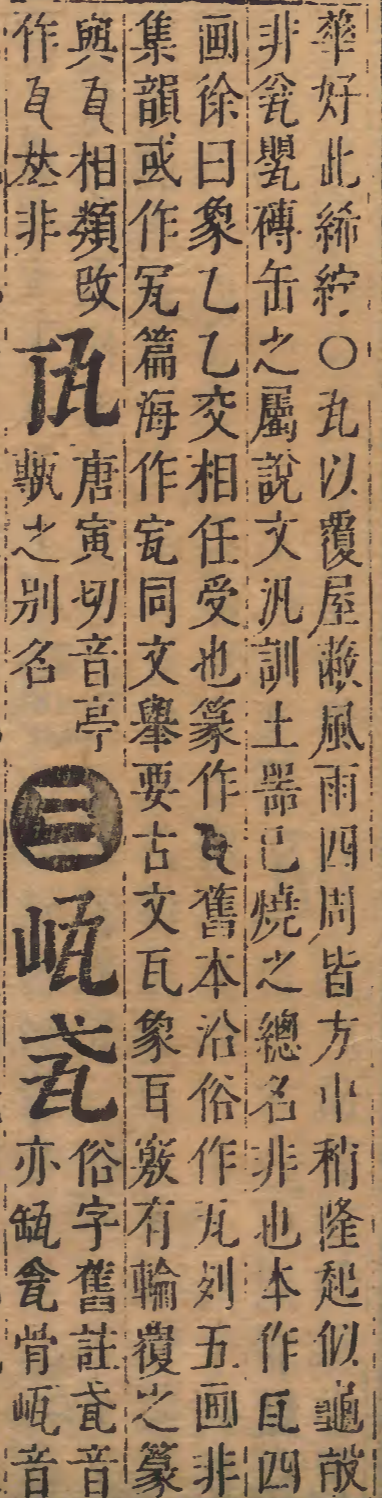 華好此絺綌〇瓦以覆屋蔽風雨四周皆方中稍隆起似龜殼
非瓮甖磚缶之屬說文汎訓土器已燒之總名非也本作瓦四
画徐曰象乙乙交相任受也篆作舊本沿俗作瓦列五画非
集韻或作篇海作同文舉要古文瓦象有輪覆之篆
與相類改
作竝非
唐寅切音亭
之別名
三
俗字舊註音
亦缻骨音